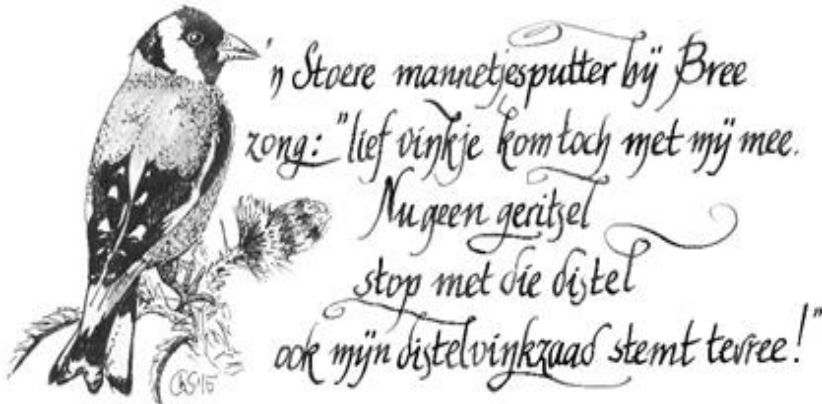 'n Stoere mannetjesputter bij Bree
zong: "lief vinkje kom toch met mij mee.
Nu geen geritsel
stop met die distel
ook mijn distelvinkzaad stemt tevree!"